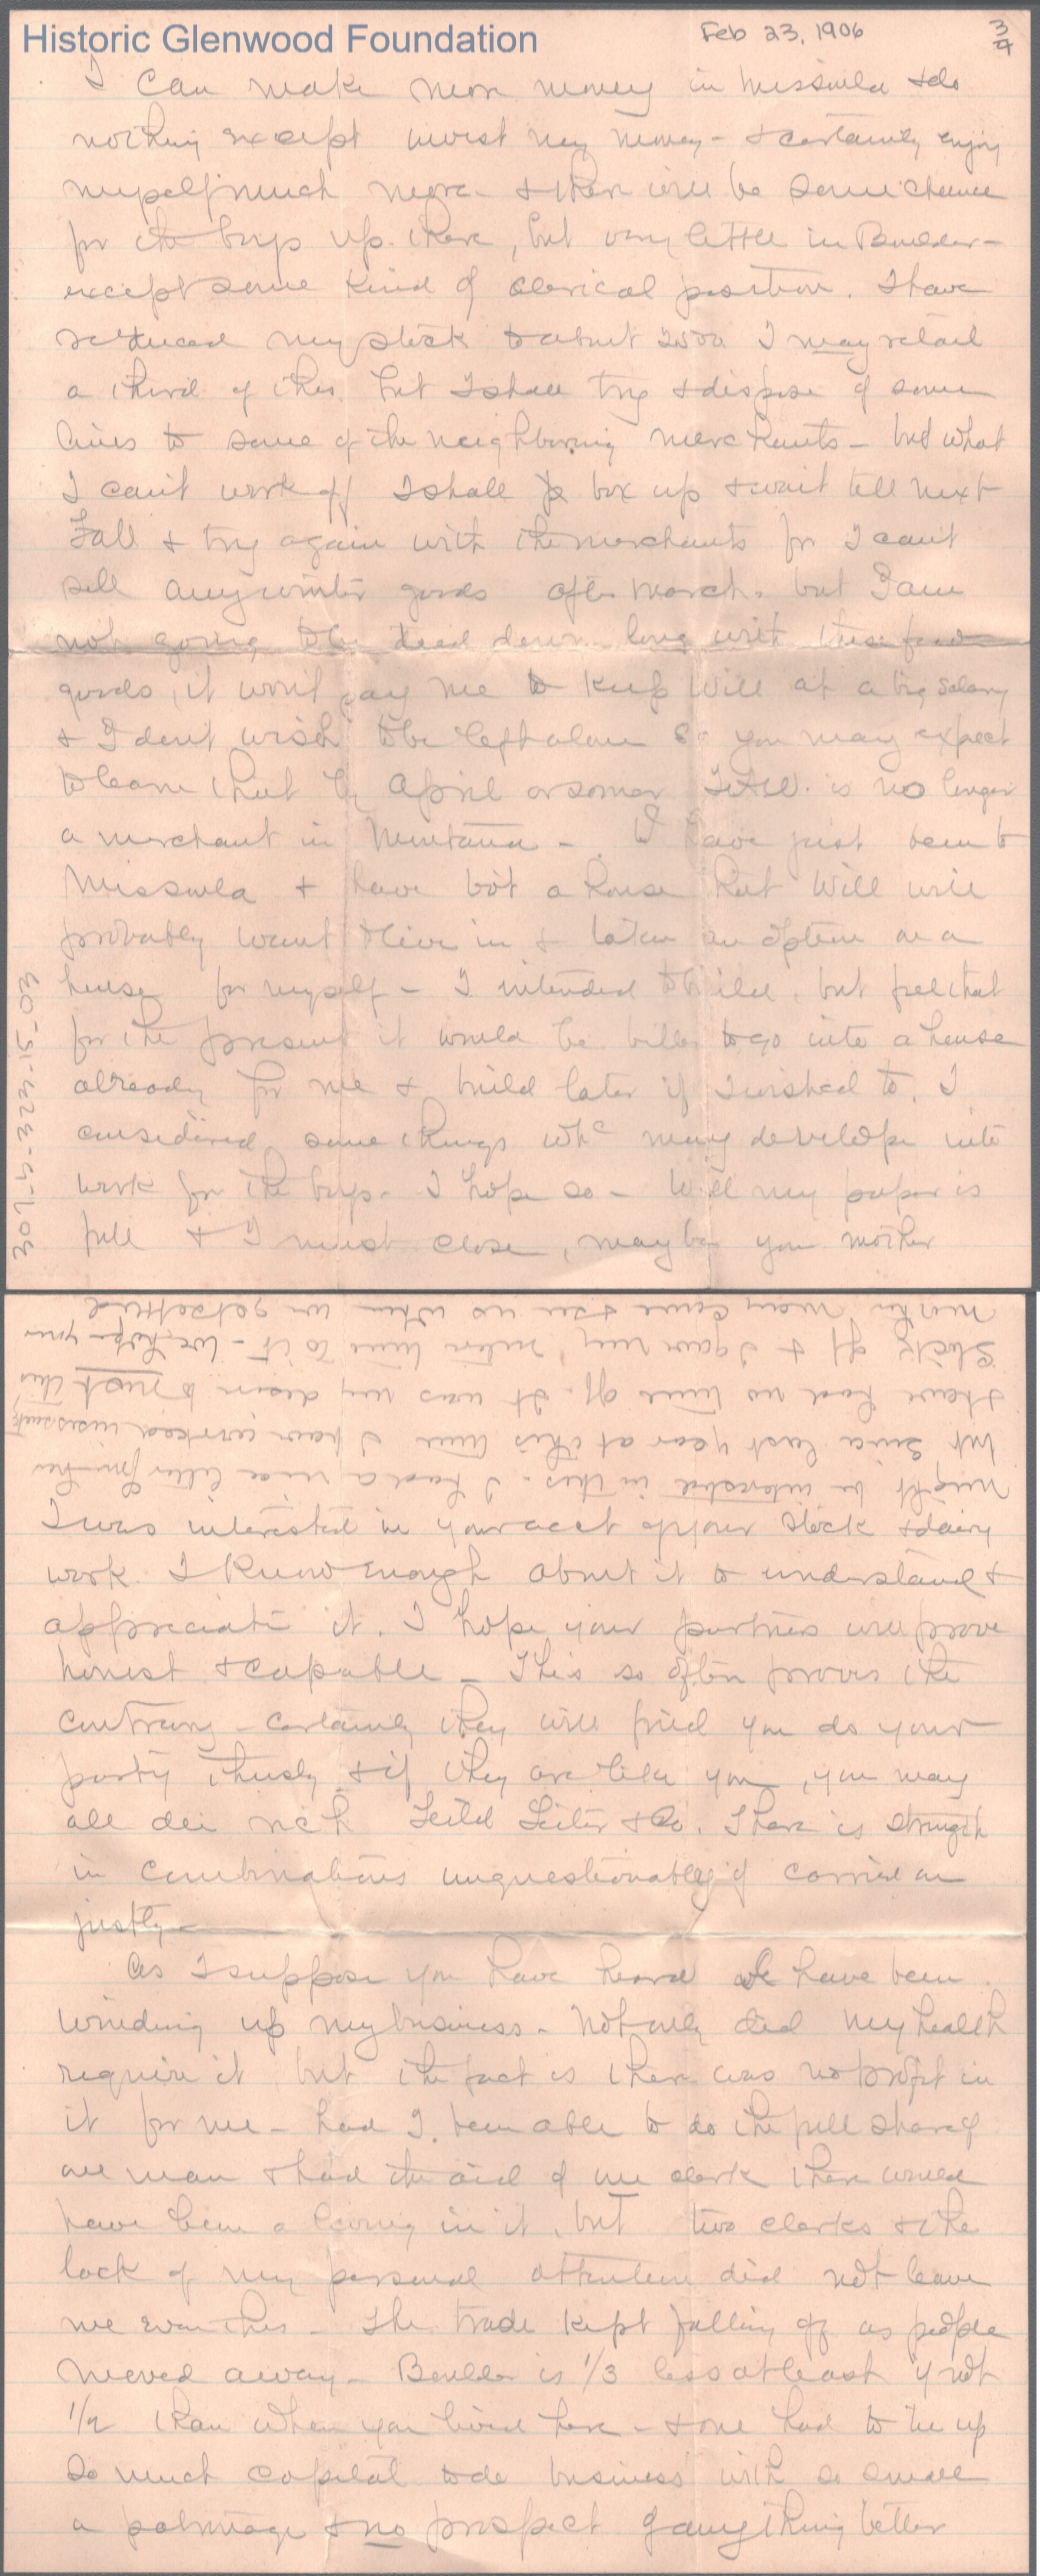 Historic Glenwood Foundation
Feb 23, 1906
3/4
I can make more money in Missoula & do
nothing except invest my money - & certainly enjoy
myself much more - & there will be some chance
for the boys up there, but very little in Boulder -
except some kind of clerical position. I have
reduced my stock to about I may retail
a third of this but I shall try & dispose of some
lines to some of the neighboring merchants - but what
I can't work off I shall box up & wait till next
Fall & try again with the merchants for I can't
sell any winter goods after March. but I am
not going to be tied down long with these few
goods, it won't pay me to keep Will at a big salary
& I don't wish to be left alone So you may expect
to learn that by April or sooner is no longer
a merchant in Montana - I have just been to
Missoula & have bot a house that Will will
probably want to live in & taken an option on a
house for myself - I intended to build, but feel that
for the present it would be better to go into a house
already for me & build later if I wished to. I
considered some things whc may develope into
work for the boys - I hope so - Well my paper is
full & I must close, maybe your mother
309-4-323-4-15-03
might be interested in this. I had a nice letter from her
but since last year at this time I have worked incessantly
I have had no time off. It was my desire to most this
stock off & I gave my entire time to it - We hope your
mother may come & see us when we get settled
I was interested in your acct of your stock & dairy
work. I know enough about it to understand &
appreciate it. I hope your partners will prove
honest & capable - This so often proves the
contrary - certainly they will find you do your
party thusly & if they are like you, you may
all die rich Leiter & Co. There is strength
in combinations unquestionably if carried on
justly -
As I suppose you have heard we have been
winding up my business - Not only did my health
require it, but the fact is there was no profit in
it for me - had I been able to do the full share of
one man & had the aid of one clerk there would
have been a living in it, but two clerks & the
lack of my personal attention did not leave
me even this - The trade kept falling off as people
moved away - Boulder is 1/3 less at least if not
1/2 than when you lived here - & one had to tie up
so much capital to do business with so small
a patronage & no prospect of anything better